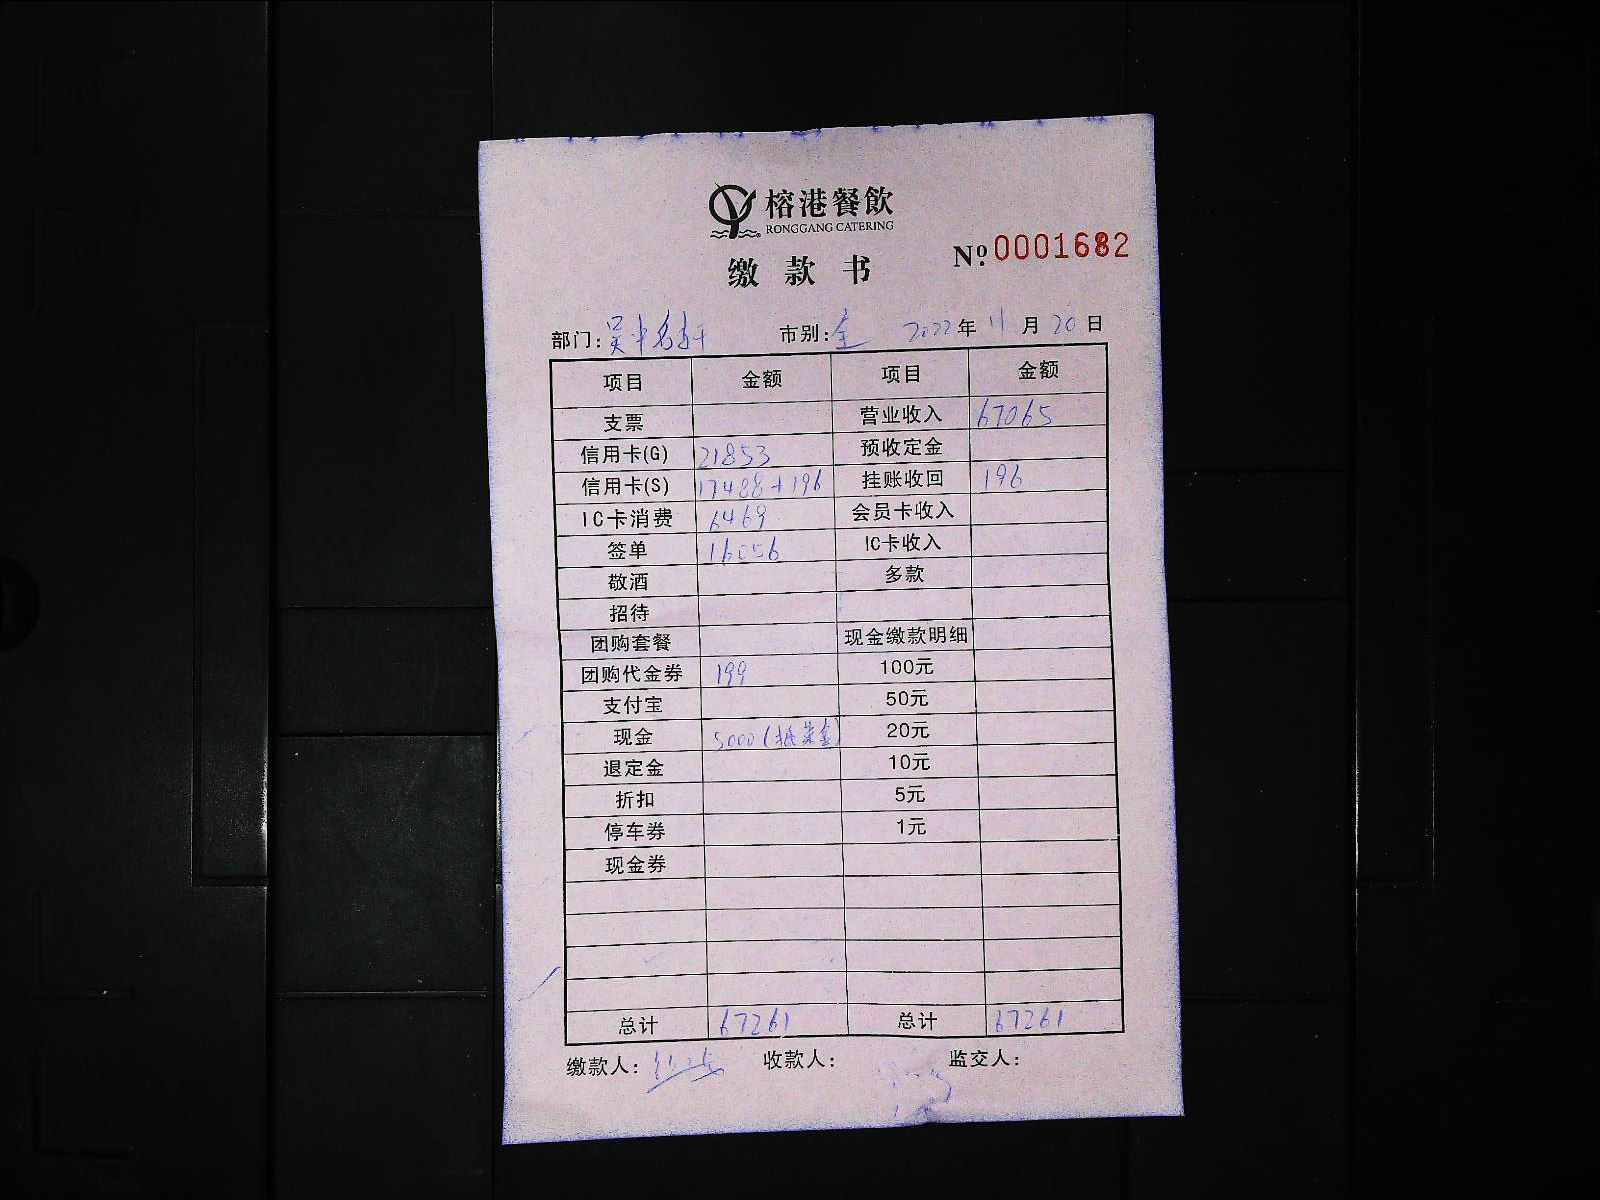 榕港餐飲
RONGGANG CATERING
缴款书 Nº 0001682
部门: 吴中名轩 市别: 全 2022年11月20日
项目 金额 项目 金额
支票 营业收入 67065
信用卡(G) 21853 预收定金
信用卡(S) 17488+196 挂账收回 196
IC卡消费 6469 会员卡收入
签单 16056 IC卡收入
敬酒 多款
招待
团购套餐 现金缴款明细
团购代金券 199 100元
支付宝 50元
现金 5000(抵菜金) 20元
退定金 10元
折扣 5元
停车券 1元
现金券
总计 67261 总计 67261
缴款人: 收款人: 监交人: